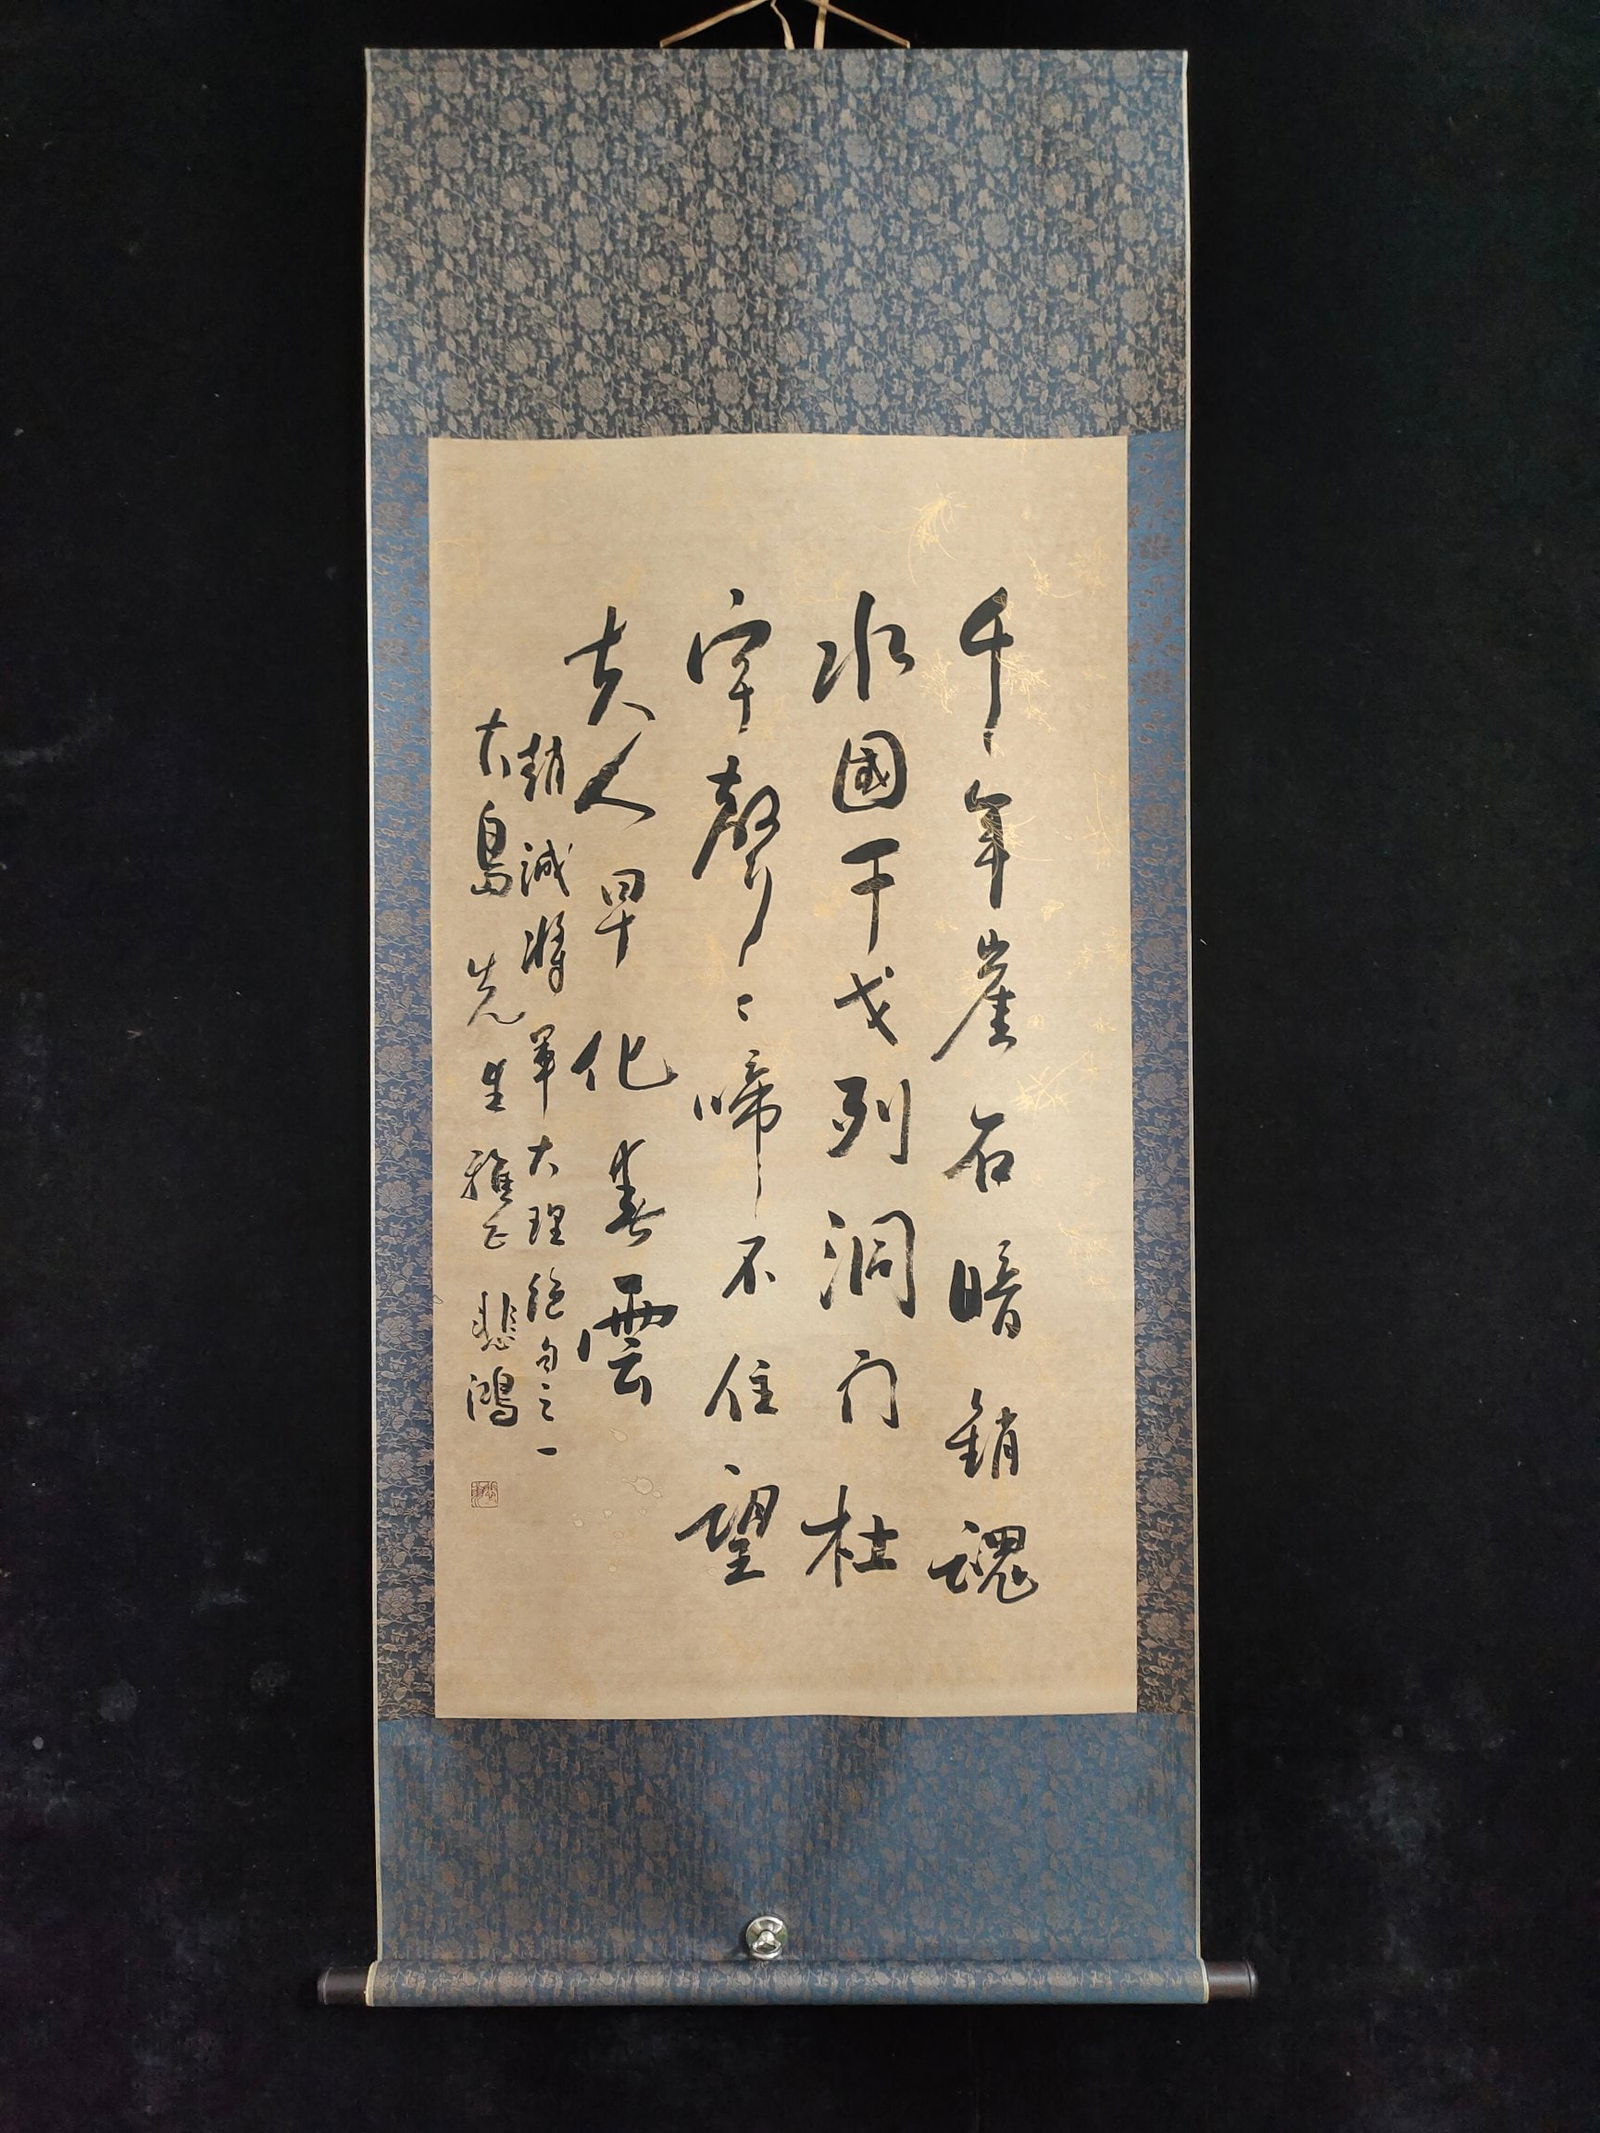 千年崖石暗銷魂
水國干戈列洞门杜
宇聲〻啼不住望
夫人早化春雲
趙誠將軍大理絕句之一
大島先生雅正 悲鴻